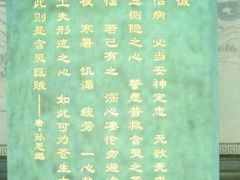 诚
治病 必当安神定志 无欲无
恻隐之心 誓愿普救含灵之
恼 若己有之 深心凄怆 勿避
夜 寒暑 饥渴 疲劳 一心
工夫形迹之心 如此可为苍生
此则是含灵巨贼——唐·孙思邈